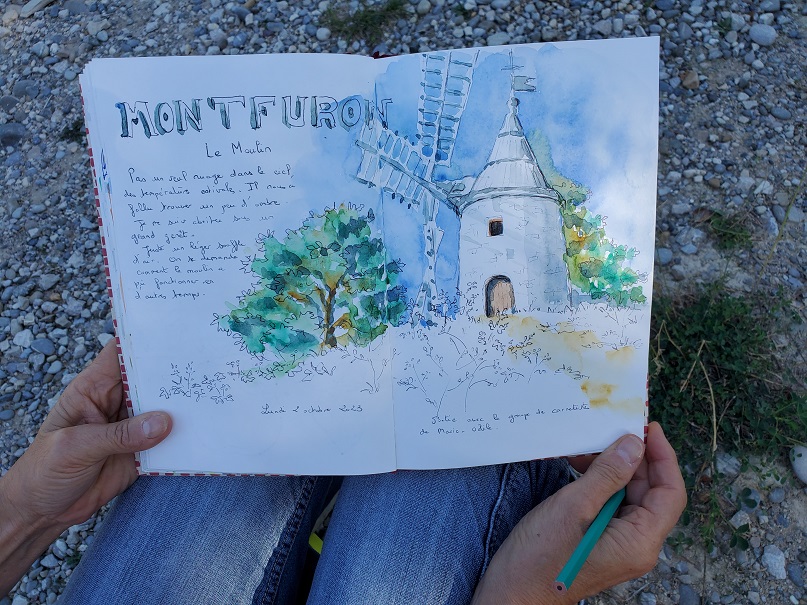 MONTFURON
Le Moulin
Pas un seul nuage dans le ciel,
des températures estivales. Il nous a
fallu trouver un peu d'ombre.
Je me suis abritée sous un
grand
Juste un léger souffle
d'air. On se demande
comment le moulin a
pu fonctionner en
d'autres temps.
Lundi 2 octobre 2023
Sortie avec le groupe de carnettiste
de Marie-Odile.